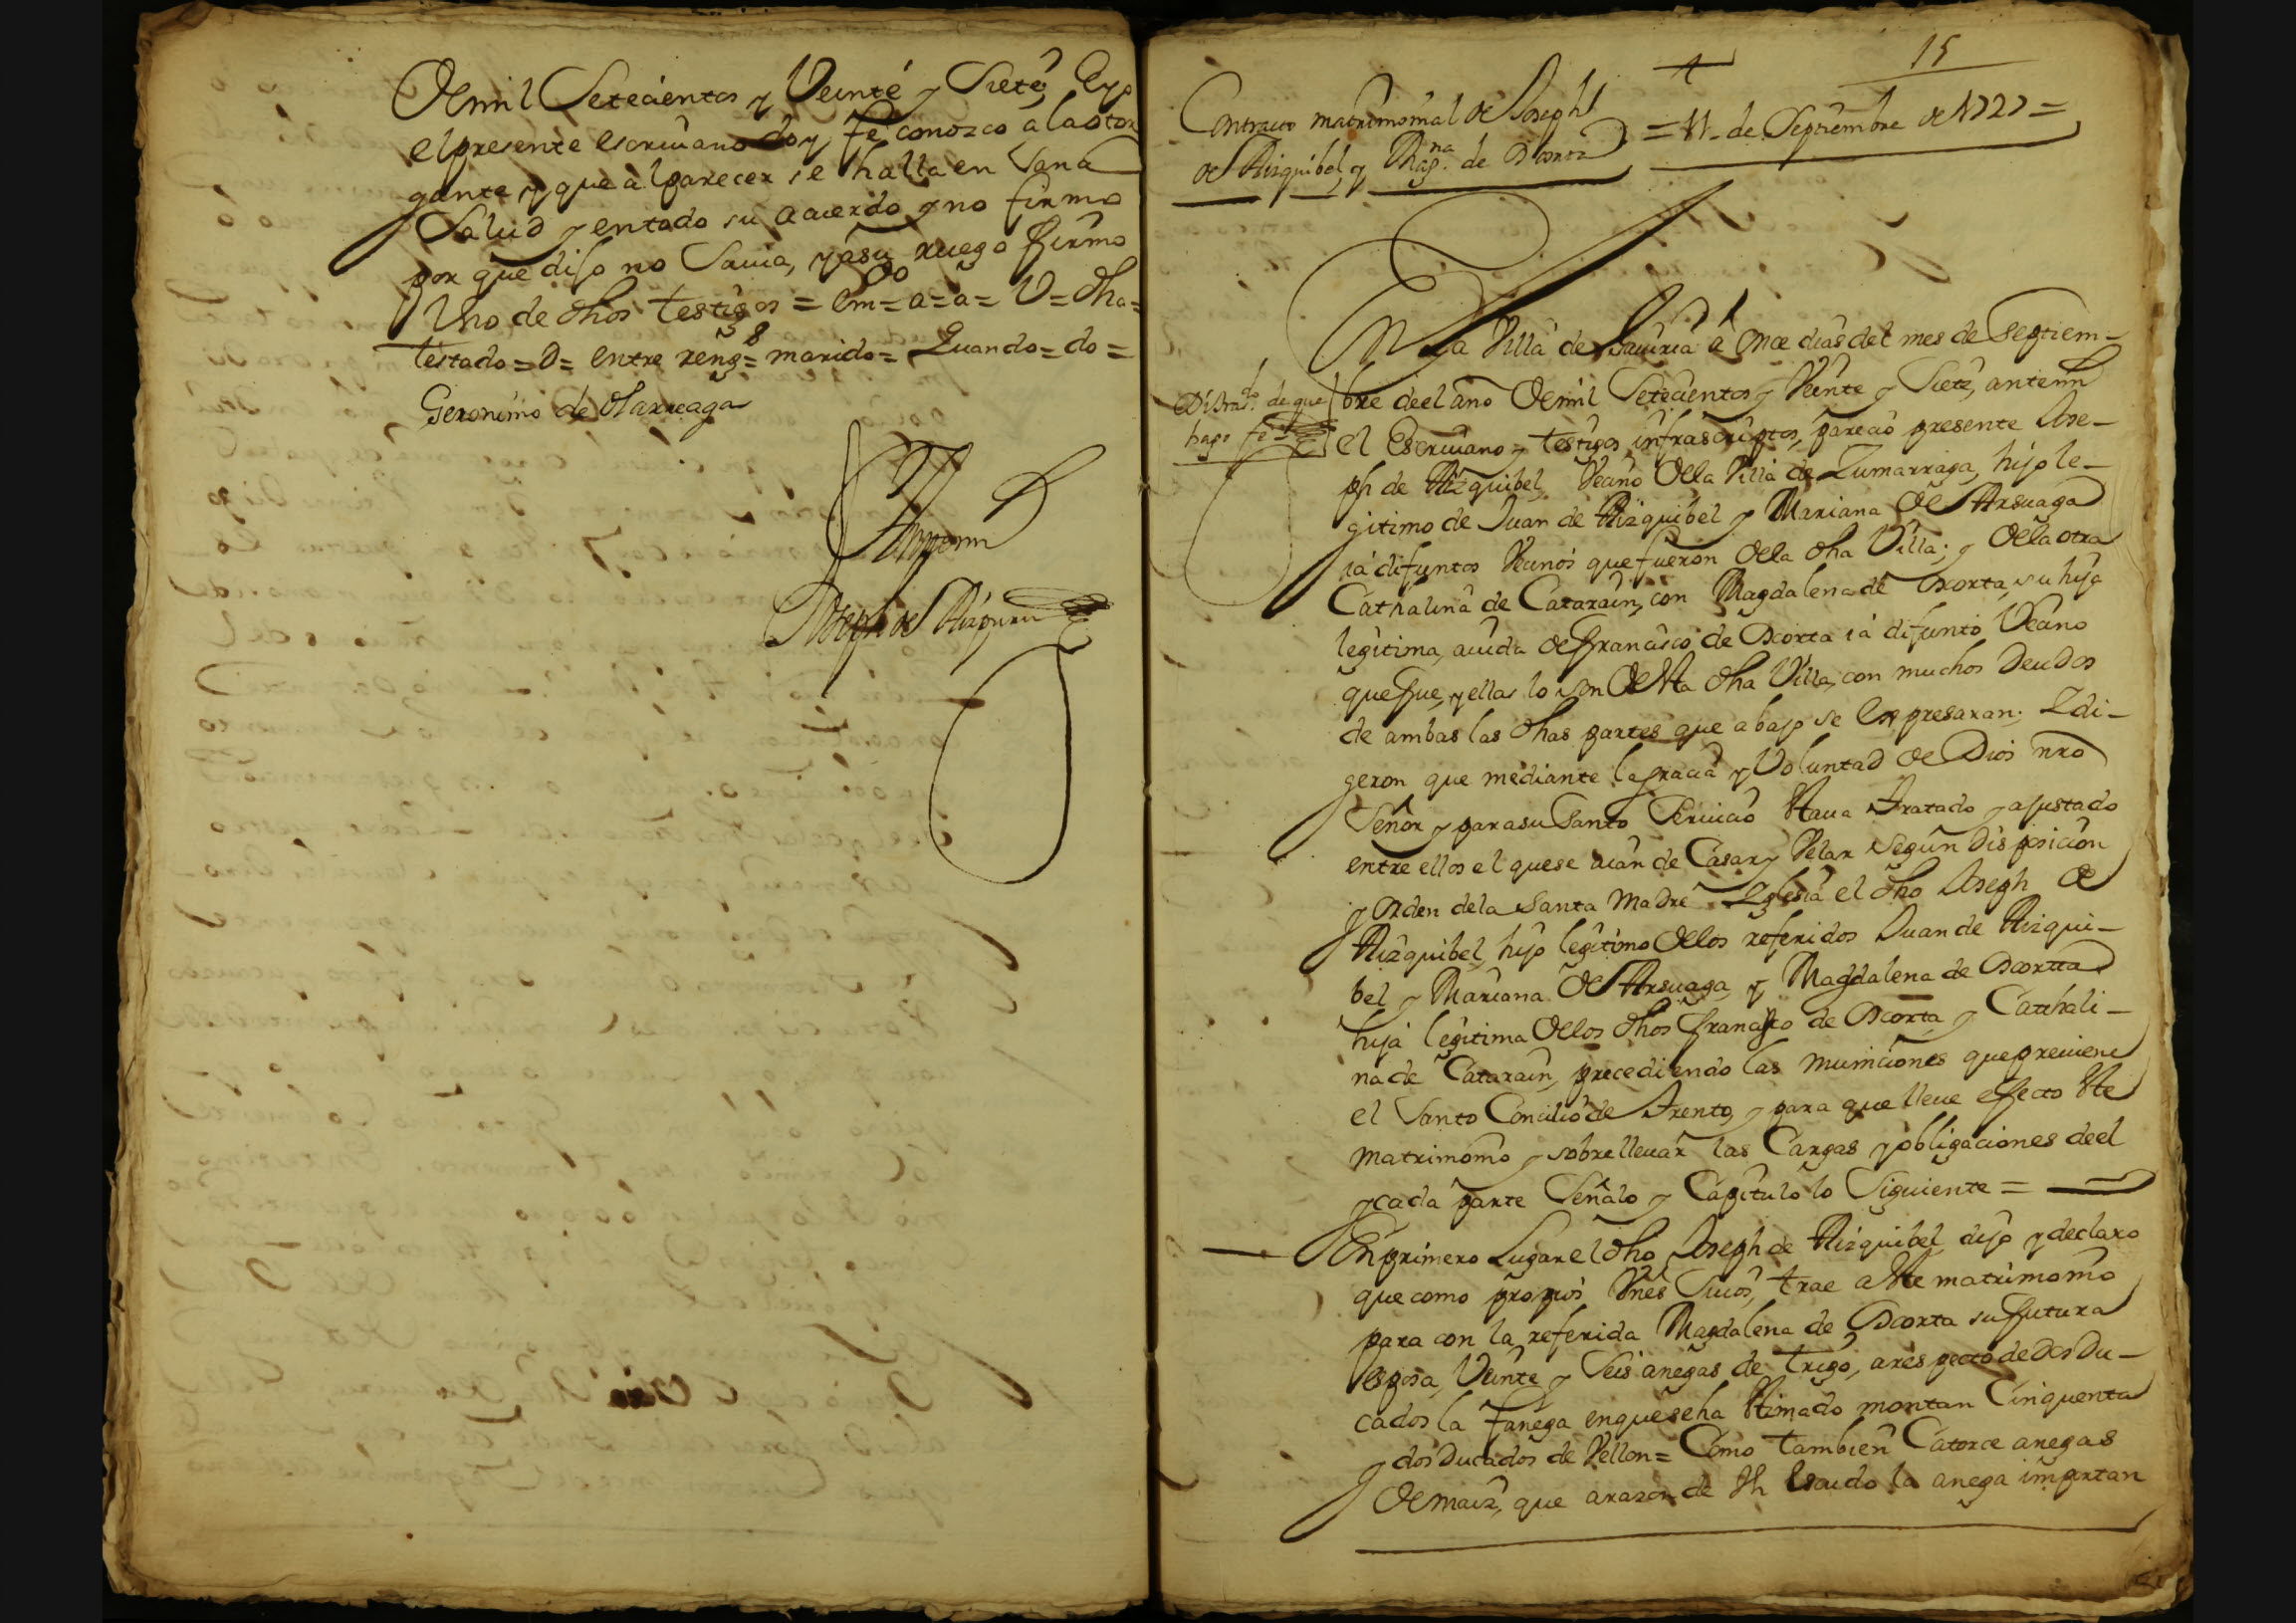 de mil Setecientos y Veinte y Siete, Eyo
el presente escriuano doy fe conozco a la otor
gante, y que al parecer se halla en Sana
Salud y entodo su acuerdo y no firmo
por que dijo no Sauia, y asu ruego firmo
Uno de dhos testigos = em = a = a = V = dha =
testado = D = entre rengs = marido = Quando = do =
Geronimo de Olarreaga
Ante mi
Joseph de Aizpuru
15
Contracto matrimonial de Joseph
de Aizquibel, y Magna. de Dcorta = 11 de Septiembre de 1727 =
En la Villa de Azcoitia a Once dias del mes de Septiem-
bre deel año de mil Setecientos y Veinte y Siete, antemi
Di traslo. de que
hago fe
el Escriuano y testigos infrascriptos, parecio presente Jose-
ph de Aizquibel, Vecino de la Villa de Zumarraga, hijo le-
gitimo de Juan de Aizquibel y Mariana de Arsuaga
ia difuntos Vecinos que fueron de la dha Villa; y de la otra
Cathalina de Catarain, con Magdalena de Dcorta, su hija
legitima, auida de Francisco de Dcorta ia difunto Vecino
que fue, y ellas lo son de esta dha Villa, con muchos Deudos
de ambas las dhas partes que abajo se Expresaran; Y di-
geron que mediante la gracia y Voluntad de Dios nro
Señor y para su Santo Seruicio estaua tratado y ajustado
entre ellos el que se aian de Casar y Velar segun Disposicion
y orden dela Santa Madre Yglesia el dho Joseph de
Aizquibel, hijo legitimo de los referidos Juan de Aizqui-
bel y Mariana de Arsuaga, y Magdalena de Dcorta
hija legitima de los dhos Francisco de Dcorta y Cathali-
na de Catarain, precediendo las municiones que preuiene
el Santo Concilio de Trento, y para que lleue efecto este
matrimonio y sobrelleuar las Cargas y obligaciones deel
y cada parte Señalo y Capitulo lo Siguiente =
En primero Lugar el dho Joseph de Aizquibel, dijo y declaro
que como propios Vnes Suios, trae a este matrimonio
para con la referida Magdalena de Dcorta su futura
esposa, Veinte y Seis anegas de trigo, a respecto de dos Du-
cados la fanega en que se ha estimado montan Cinquenta
y dos Ducados de Vellon = Como tambien Catorce anegas
de maiz, que a razon de Vn Escudo la anega importan